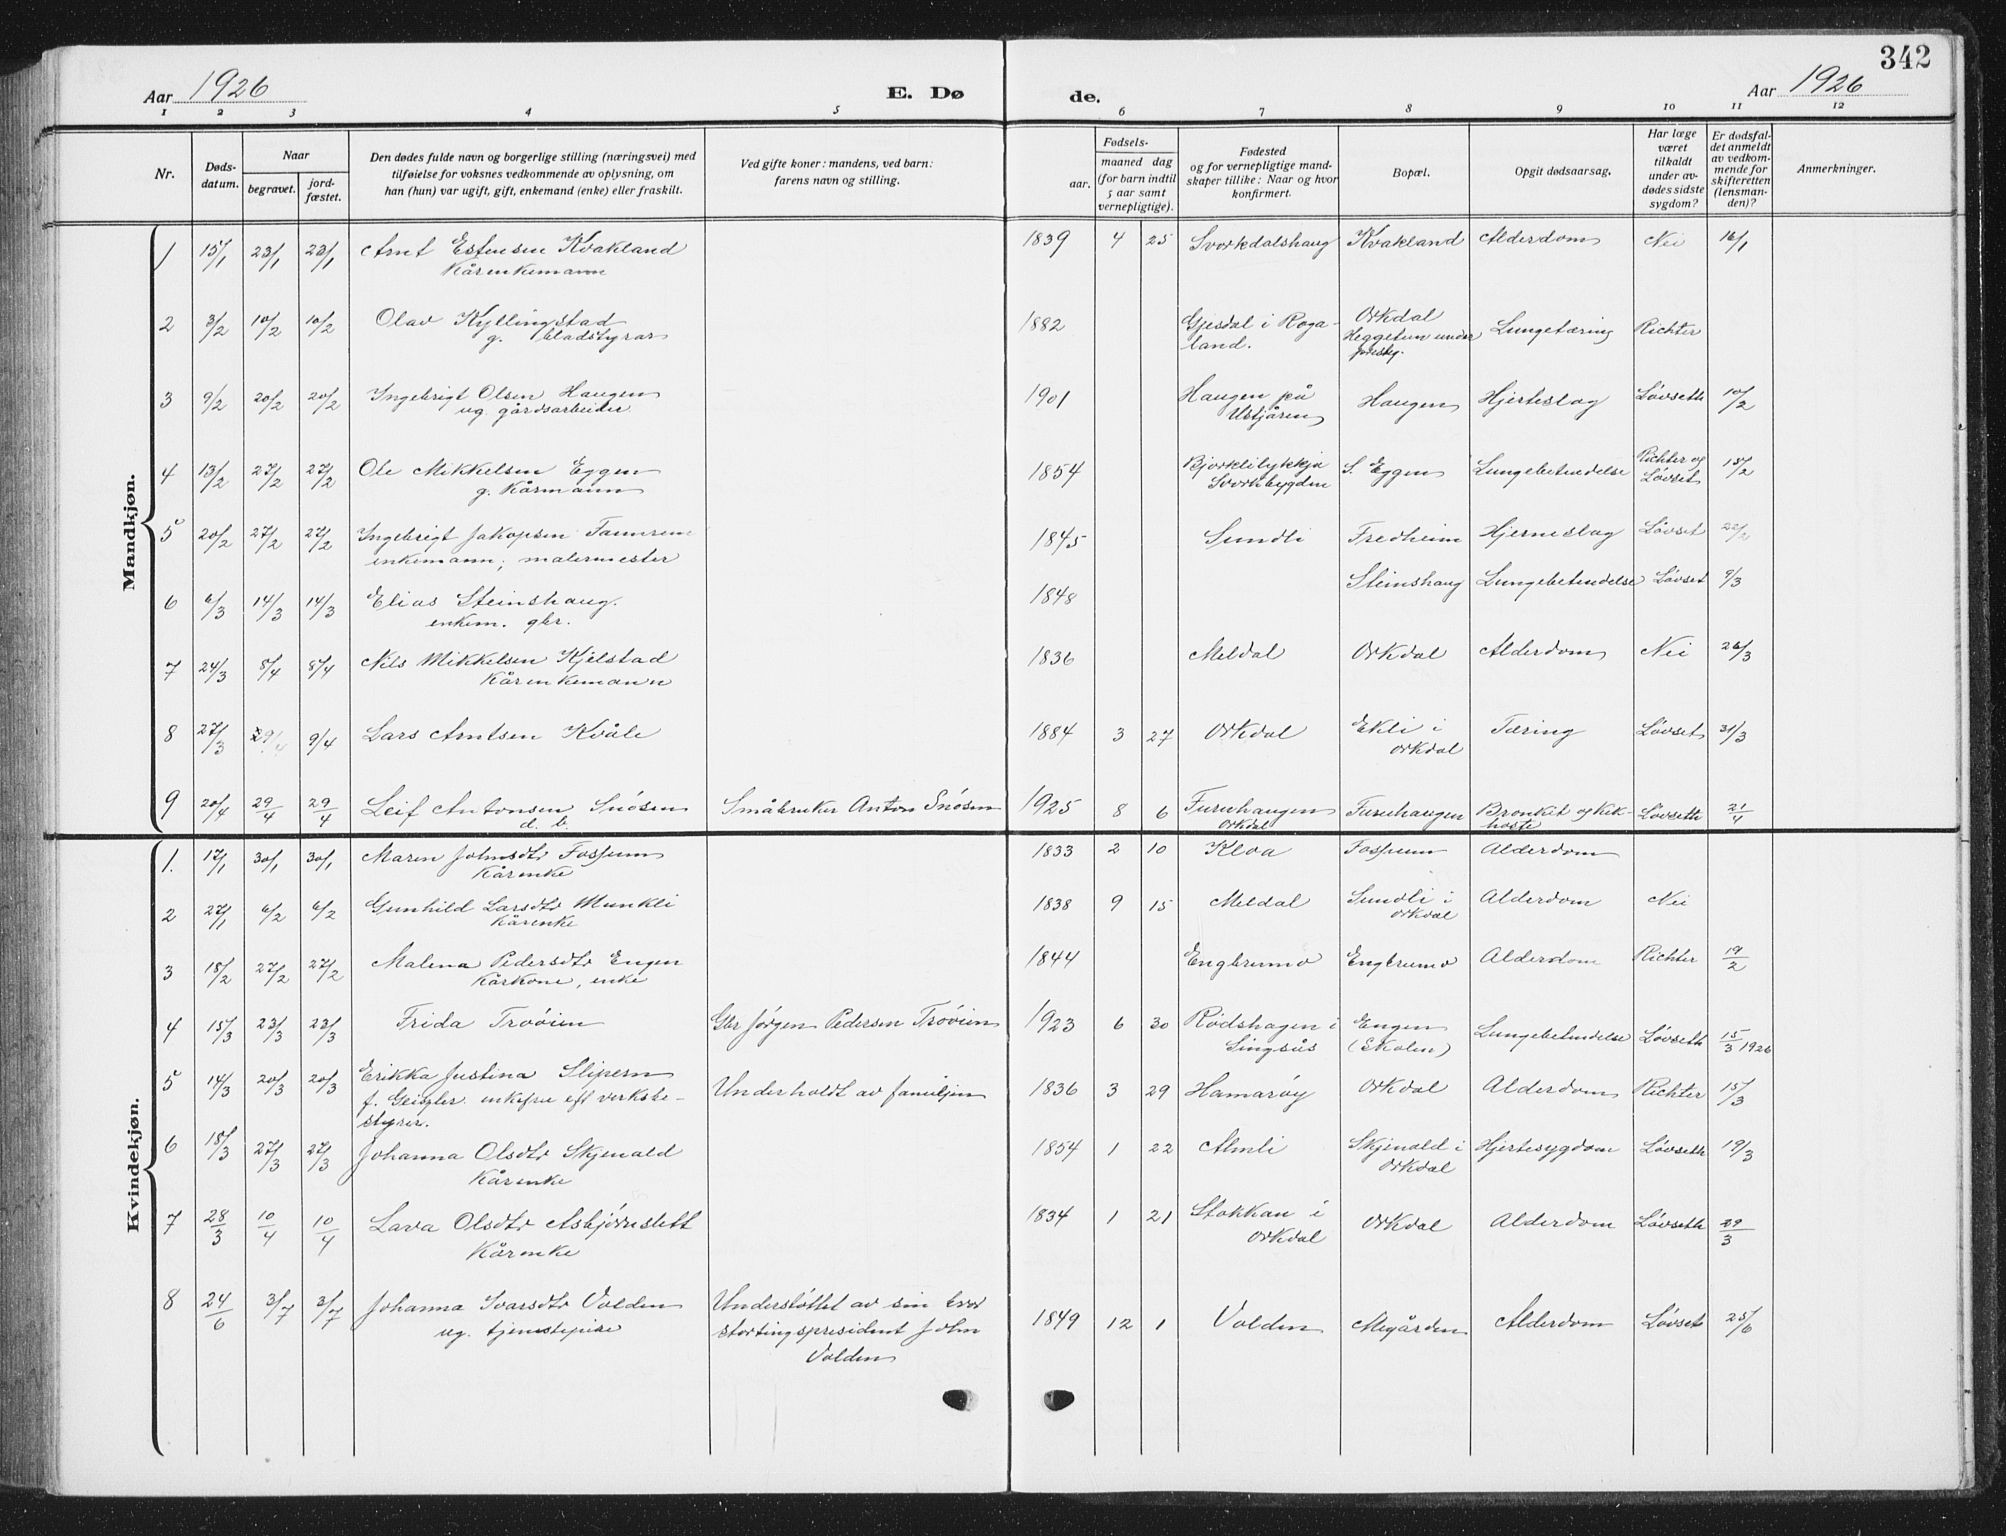 342
Aar 1926 E. Dø de. Aar 1926
1 2 3 4 5 6 7 8 9 10 11 12
Nr. Døds-datum. Naar begravet. jord-fæstet. Den dødes fulde navn og borgerlige stilling (næringsvei) med tilføielse for voksnes vedkommende av oplysning, om han (hun) var ugift, gift, enkemand (enke) eller fraskilt. Ved gifte koner: mandens, ved barn: farens navn og stilling. Fødsels- aar. maaned dag (for barn indtil 5 aar samt vernepligtige). Fødested og for vernepligtige mand-skaper tillike: Naar og hvor konfirmert. Bopæl. Opgit dødsaarsag. Har læge været tilkaldt under av-dødes sidste sygdom? Er dødsfal-det anmeldt av vedkom-mende for skifteretten (lensman-den)? Anmerkninger.
Mandkjøn.
1 15/1 23/1 23/1 Arnt Estensen Kvakland 1839 4 25 Svorkdalshaug Kvakland Alderdom Nei 16/1
Kårenkemann
2 3/2 10/2 10/2 Olav Kyllingstad 1882 Gjesdal i Roga- Orkdal Lungetæring Richter
g. bladstyrar land. Heggetun under
3 9/2 20/2 20/2 Ingebrigt Olsen Haugen 1901 Haugen på Haugen Hjerteslag Løvseth 10/2
ug. gårdsarbeider Ustjåren
4 13/2 27/2 27/2 Ole Mikkelsen Eggen 1854 Bjørklilykkja S. Eggen Lungebetendelse Richter og 15/2
g. Kårmann Svorkbygden Løvset
5 20/2 27/2 27/2 Ingebrigt Jakopsen Fannrem 1845 Sundli Fredheim Hjerneslag Løvset 22/2
enkemann, malermester
6 6/3 14/3 14/3 Elias Steinshaug. 1848 Steinshaug Lungebetendelse Løvset 9/3
enkem. gbr.
7 24/3 8/4 8/4 Nils Mikkelsen Kjelstad 1836 Meldal Orkdal Alderdom Nei 26/3
Kårenkemann
8 27/3 9/4 9/4 Lars Arntsen Kvåle 1884 3 27 Orkdal Ekli i Tæring Løvset 31/3
Orkdal
9 20/4 29/4 29/4 Leif Antonsen Snøsen Småbruker Anton Snøsen 1925 8 6 Furuhaugen Furuhaugen Bronkit og Kik- Løvseth 21/4
d. b. Orkdal hoste
Kvindekjøn.
1. 17/1 30/1 30/1 Maren Johnsdtr Fossum 1833 2 10 Kloa Fossum Alderdom
Kårenke
2 27/1 6/2 6/2 Gunhild Larsdtr Munkli 1838 9 15 Meldal Sundli i Alderdom Nei
Kårenke Orkdal
3 18/2 27/2 27/2 Malena Pedersdtr Engen 1844 Engbrumo Engbrumo Alderdom Richter 19/2
Kårkone, enke
4 15/3 23/3 23/3 Frida Trøøien Gbr Jørgen Pedersen Trøøien 1923 6 30 Rødshagen i Engen Lungebetendelse Løvseth 15/3 1926
Singsås (Skolen)
5 14/3 20/3 20/3 Erikka Justina Slipern Underholdt av familjen 1836 3 29 Hamarøy Orkdal Alderdom Richter 15/3
f. Geisler. enkefru eft verksbe-
styrer.
6 18/3 27/3 27/3 Johanna Olsdtr Skjenald 1854 1 22 Almli Skjenald i Hjertesygdom Løvseth 19/3
Kårenke Orkdal
7 28/3 10/4 10/4 Lava Olsdtr Asbjørnslett 1834 1 21 Stokkan i Orkdal Alderdom Løvseth 29/3
Kårenke Orkdal
8 24/6 3/7 3/7 Johanna Ivarsdtr Volden Understøttet av sin bror 1849 12 1 Volden Megården Alderdom Løvset 25/6
ug. tjenestepike stortingspresident John
Volden